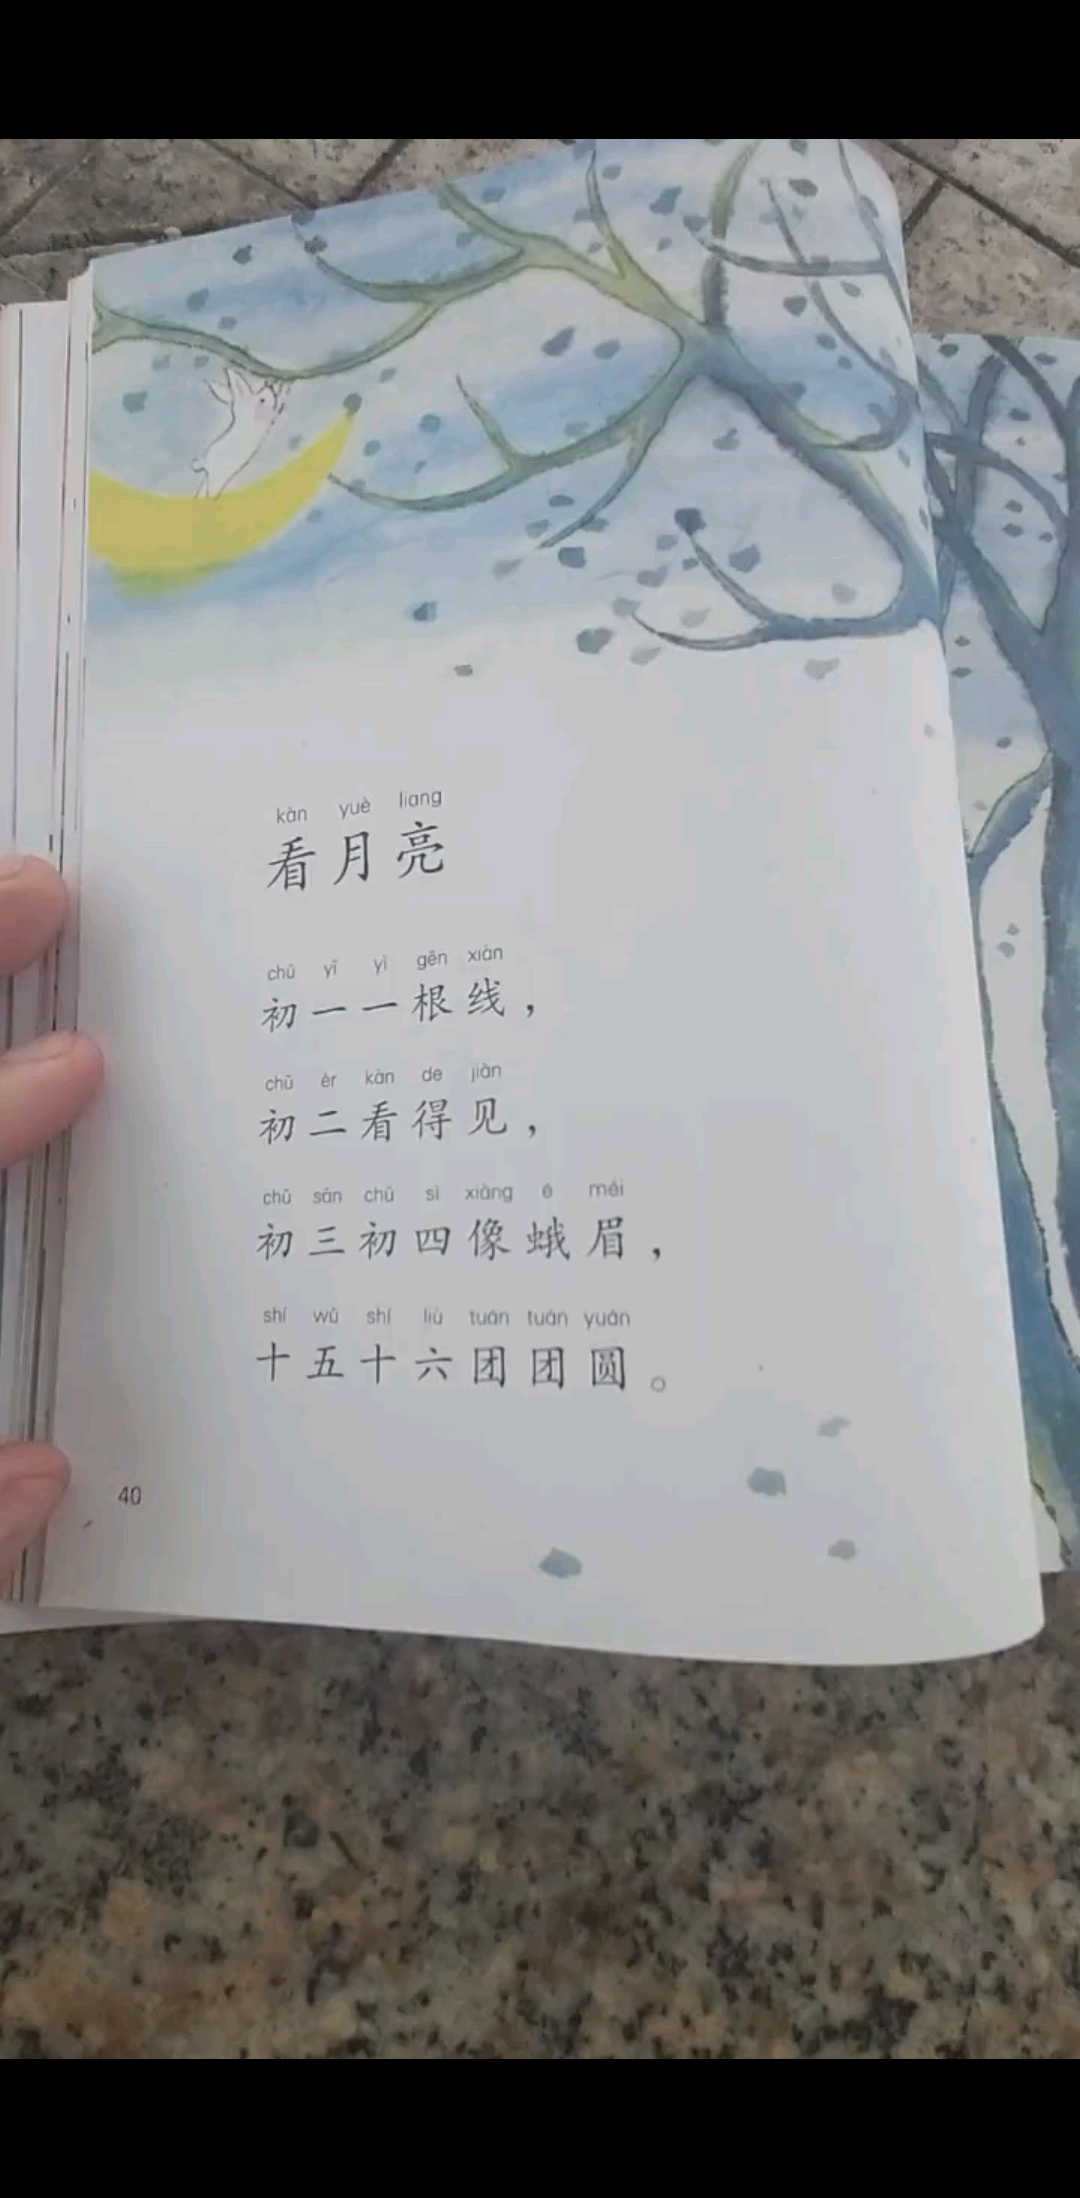 kàn yuè liang
看月亮
chū yī yì gēn xiàn
初一一根线，
chū èr kàn de jiàn
初二看得见，
chū sān chū sì xiàng é méi
初三初四像蛾眉，
shí wǔ shí liù tuán tuán yuán
十五十六团团圆。
40